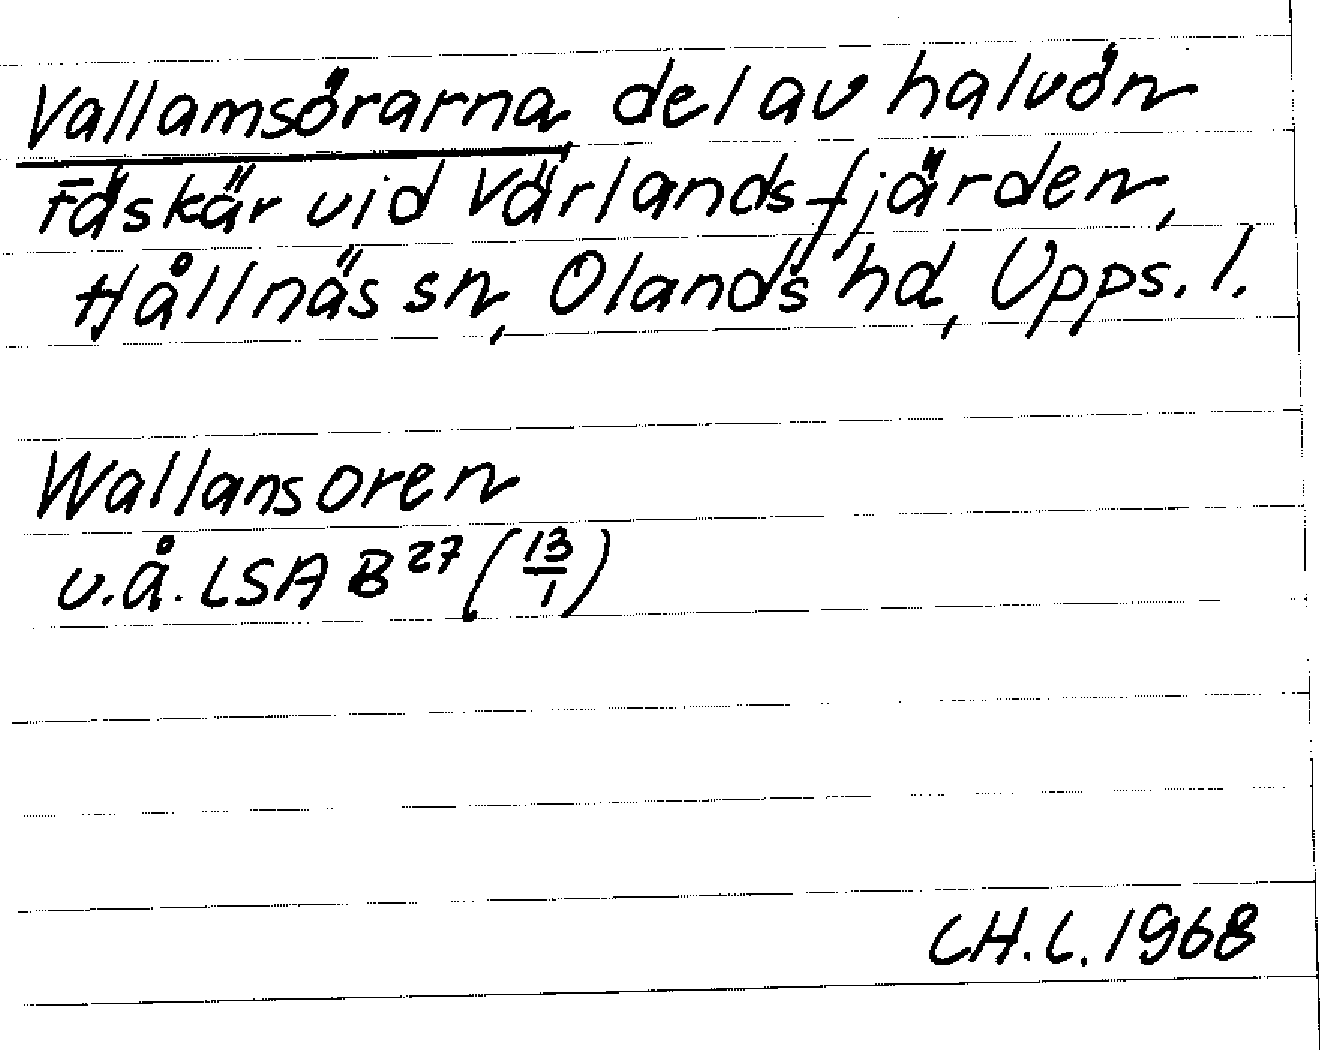 Vallamsörarna, del av halvön
Fäskär vid Värlandsfjärden,
Hållnäs sn, Olands hd, Upps. l.
Wallansoren
u.å. LSA B 27 (13/1)
CH.L. 1968